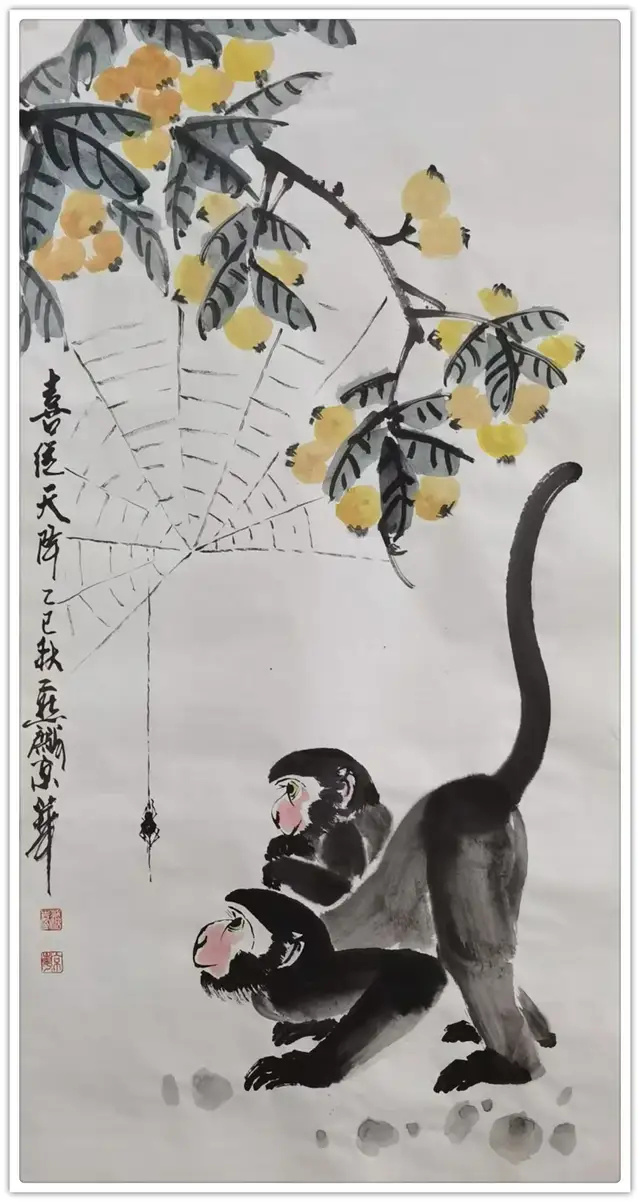 喜從天降 乙巳秋 燕 京華
京華